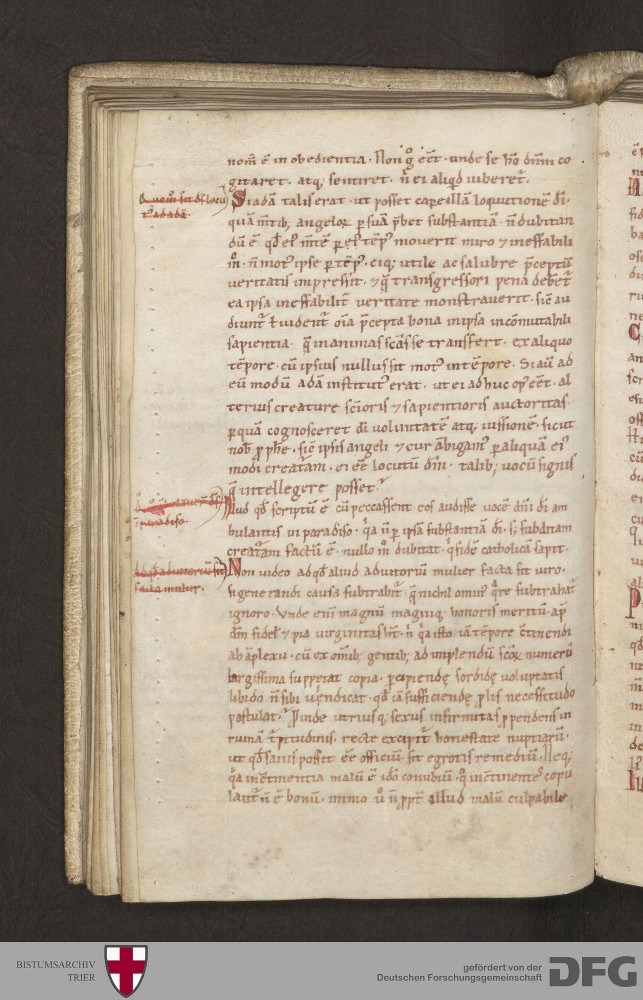 nom̄ ē in obedientia · Non ḡ eēt · unde se hō dn̄m co
gitaret · atq; sentiret · n̄ ei aliqd iuberet᷑.
Quom̄ sit ds̄ locu
t᷑ ad adā
Si adā talis erat · ut posset capellā loquutionē dī ·
quā m̄tib; angeloꝝ ꝑ suā p̄bet substantiā · n̄ dubitan
dū ē qd̄ ei᷑ m̄tē ꝑ ei᷑ tēp᷑ moverit miro ⁊ ineffabili
m̊ · n̄ mot᷑ ipse ꝑ tēp᷑ · eiq; utile ac salubre p̄ceptū
veritatis impressit · ⁊ q̄ transgressori pena debet᷑
ea ipsa ineffabilit᷑ veritate monstraverit · sic̄ au
diunt᷑ ł vident᷑ oīa p̄cepta bona in ipsa incōmutabili
sapientia · q̄ in animas sc̄as se transfert · ex aliquo
tēpore · cū ipsius nullus sit mot᷑ in tēpore · Si aū ad
eū modū adā institut᷑ erat · ut ei adhuc op᷑ eēt · al
terius creature sc̄ioris ⁊ sapientioris auctoritas ·
ꝑ quā cognosceret dī voluntatē atq; iussionē · sicut
nob̄ ꝓphē · sic̄ ipsis angeli ⁊ cur ābigam᷑ ꝑ aliquā ei᷑
modi creat᷑am · ei eē locutū dm̄ · talib; vocū signis
q̄ intellegere posset?
in paradiso
Illud qd̄ scriptū ē cū peccassent eos audisse vocē dn̄i dī am
bulantis in paradiso · q̄a n̄ ꝑ ipsā substantiā dī · s; subditam
creat᷑am factū ē · nullo m̊ dubitat · q̄ fidē catholicā sapit ·
Ad qd̄ adiutoriū sit
facta mulier ·
Non video ad qd̄ aliud adiutoriū mulier facta sit viro ·
si generandi causa subtrahit᷑ · q̄ nichil omin᷑ q̄re subtrahat᷑
ignoro · Unde enī magnū magniq; honoris meritū · ap̄
dm̄ fidel᷑ ⁊ pia virginitas h̄t · n̄ q̄a isto iā tēpore c̄tinendi
ab āplexu · cū ex om̄ib; gentib; ad implendū sc̄oꝝ numerū
largissima suppetat copia · ꝑcipiendę sordidę voluptatis
libido n̄ sibi vendicat · qd̄ iā sufficiendę ꝓlis necessitudo
postulat? Proinde utriusq; sexus infirmitas ꝓpendens in
ruinā t᷑pitudinis · recte excipit᷑ honestate nuptiarū ·
ut qd̄ sanis posset eē officiū · sit egrotis remediū · Neq;
q̄a inc̄tinentia malū ē ido conubiū · q̄ inc̄tinentes copu
lant᷑ n̄ ē bonū · immo ů n̄ ꝓpt᷑ illud malū culpabile
BISTUMSARCHIV
TRIER
gefördert von der
Deutschen Forschungsgemeinschaft
DFG